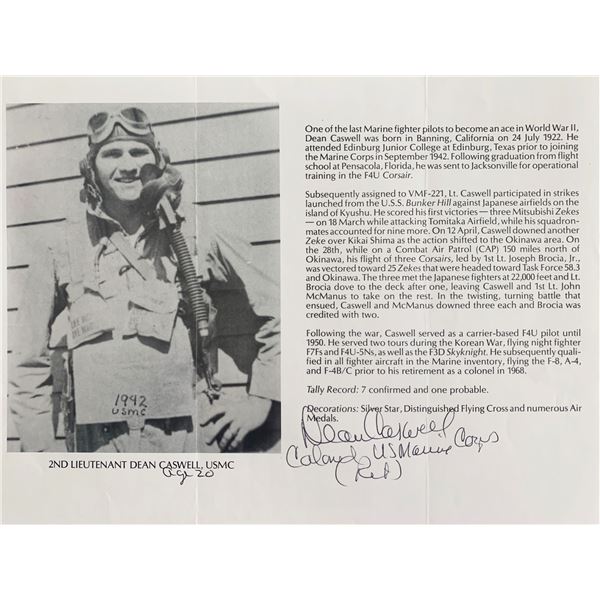 One of the last Marine fighter pilots to become an ace in World War II,
Dean Caswell was born in Banning, California on 24 July 1922. He
attended Edinburg Junior College at Edinburg, Texas prior to joining
the Marine Corps in September 1942. Following graduation from flight
school at Pensacola, Florida, he was sent to Jacksonville for operational
training in the F4U Corsair.
Subsequently assigned to VMF-221, Lt. Caswell participated in strikes
launched from the U.S.S. Bunker Hill against Japanese airfields on the
island of Kyushu. He scored his first victories — three Mitsubishi Zekes
— on 18 March while attacking Tomitaka Airfield, while his squadron-
mates accounted for nine more. On 12 April, Caswell downed another
Zeke over Kikai Shima as the action shifted to the Okinawa area. On
the 28th, while on a Combat Air Patrol (CAP) 150 miles north of
Okinawa, his flight of three Corsairs, led by 1st Lt. Joseph Brocia, Jr.,
was vectored toward 25 Zekes that were headed toward Task Force 58.3
and Okinawa. The three met the Japanese fighters at 22,000 feet and Lt.
Brocia dove to the deck after one, leaving Caswell and 1st Lt. John
McManus to take on the rest. In the twisting, turning battle that
ensued, Caswell and McManus downed three each and Brocia was
credited with two.
Following the war, Caswell served as a carrier-based F4U pilot until
1950. He served two tours during the Korean War, flying night fighter
F7Fs and F4U-5Ns, as well as the F3D Skyknight. He subsequently quali-
fied in all fighter aircraft in the Marine inventory, flying the F-8, A-4,
and F-4B/C prior to his retirement as a colonel in 1968.
Tally Record: 7 confirmed and one probable.
Decorations: Silver Star, Distinguished Flying Cross and numerous Air
Medals.
Dean Caswell
Colonel US Marine Corps
(Ret)
1942
USMC
2ND LIEUTENANT DEAN CASWELL, USMC
age 20